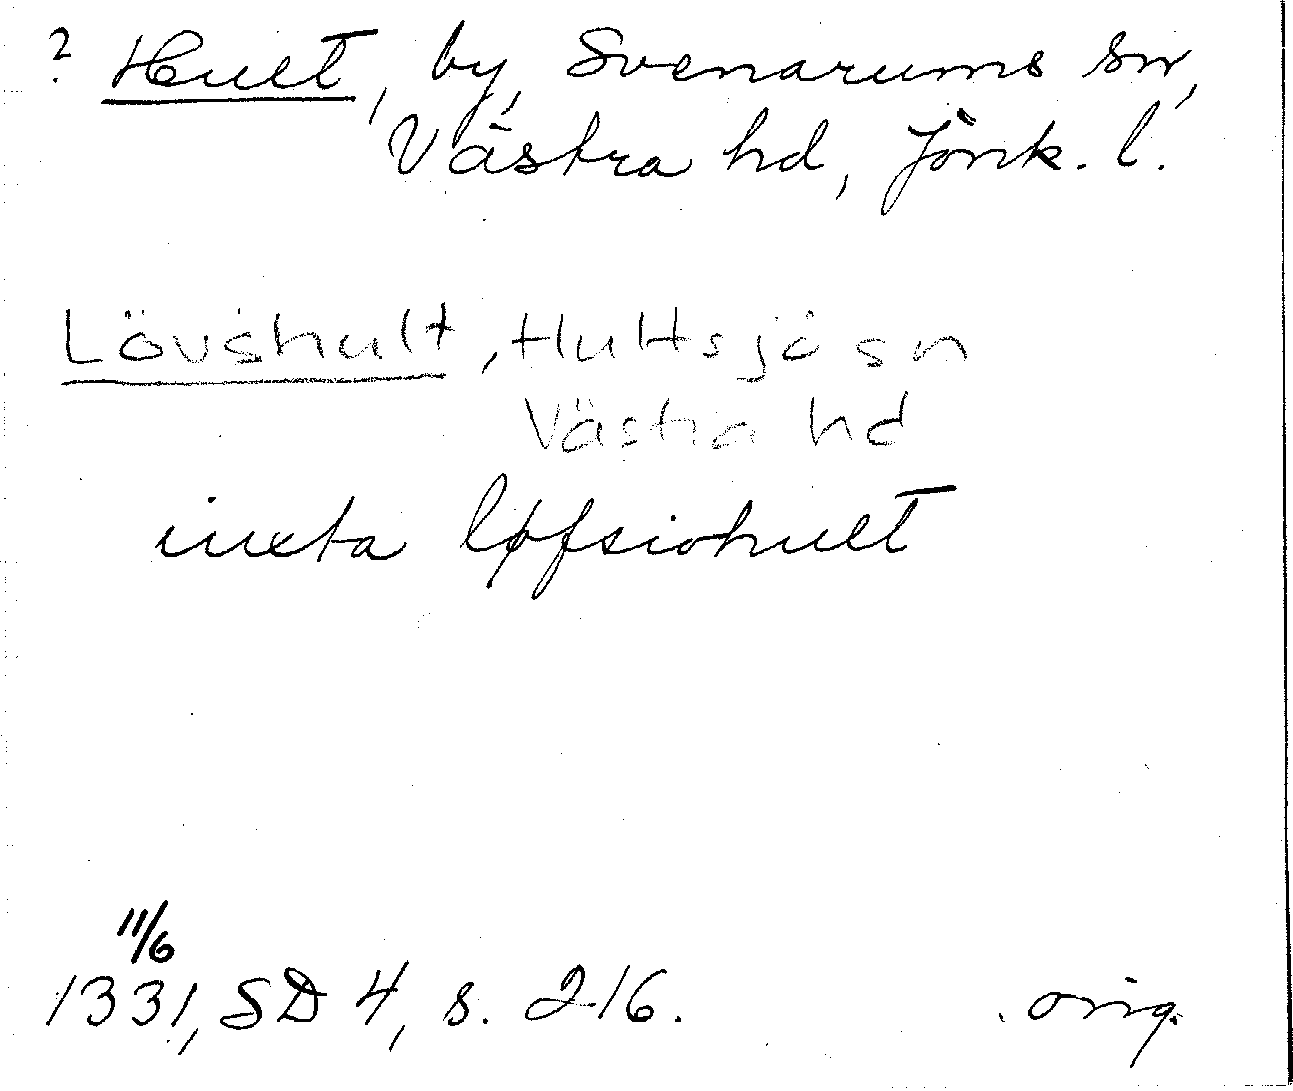 ? Hult, by, Svenarums sn,
Västra hd, Jönk. l.
Lövshult, Hultsjö sn
Västra hd
iuxta løfsiohult
11/6
1331, SD 4, s. 216. orig.